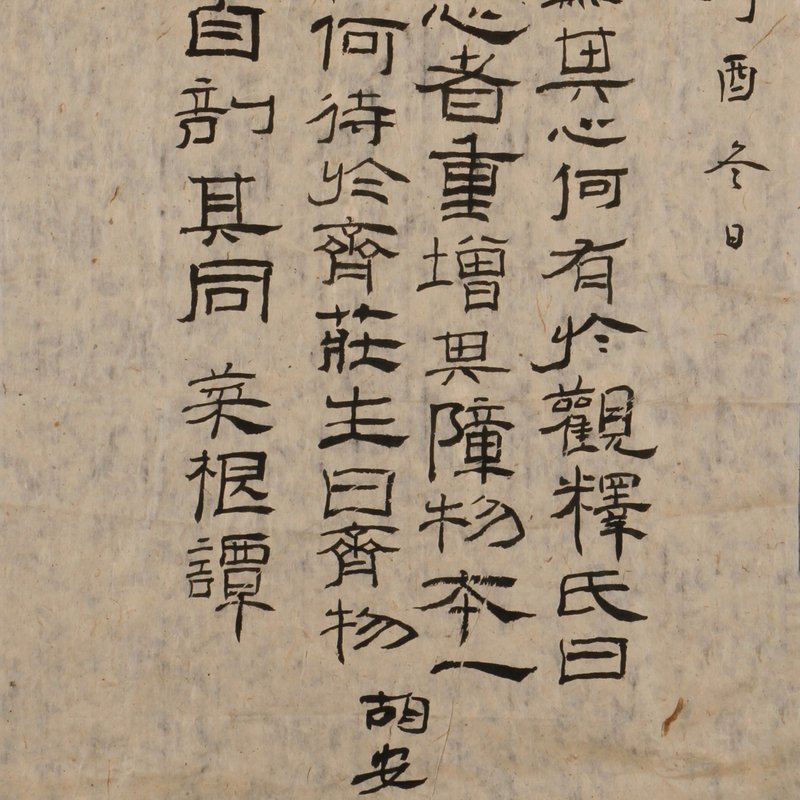 酉冬日
其心何有於觀釋氏曰
心者重增其障物本一
何待於齊莊生曰齊物
自剖其同 菜根譚
胡安